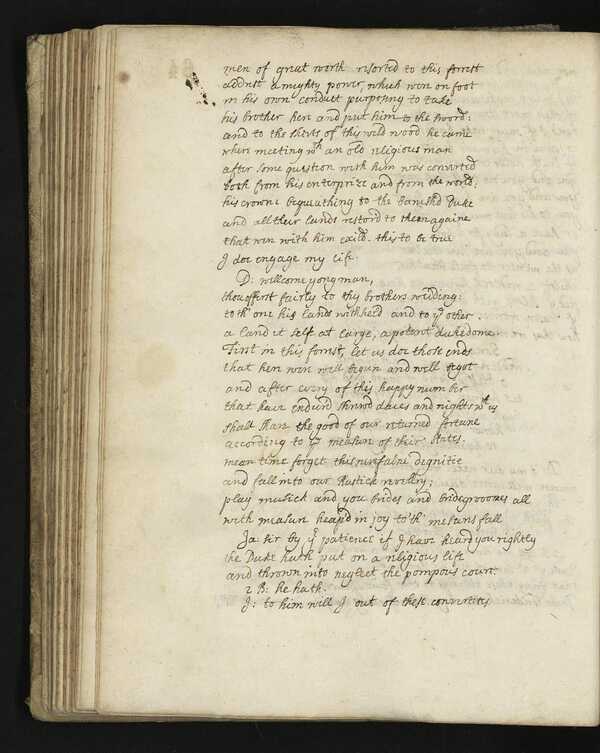 men of great worth resorted to this forrest
addrest a mighty power, which were on foot
in his own conduct purposing to take
his brother here and put him to the sword:
and to the skirts of this wild wood he came
where meeting wth an old religious man
after some question with him was converted
both from his enterprize and from the world;
his crowne bequeathing to the banishd Duke
and all their lands restord to them againe
that were with him exild. this to be true
I doe engage my life.
D: wellcome yong man,
thou offerst fairly to thy brothers wedding:
to th' one his lands withheld and to ye other.
a land it self at large, a potent dukedome.
First in this forrest, let us doe those ends
that here were well begun and well begot
and after every of this happy number
that have endurd shrewd daies and nights wth us
shall share the good of our returned fortune
according to ye measure of their states.
mean time forget this new falne dignitie
and fall into our Rustick revellry;
play musick and you brides and bridegroomes all
with measure heap'd in joy to 'th' mesures fall
Ja: sir by yr patience if I have heard you rightly
the Duke hath put on a religious life
and thrown into neglect the pompous court.
2 B: He hath.
J: to him will I out of these convertites